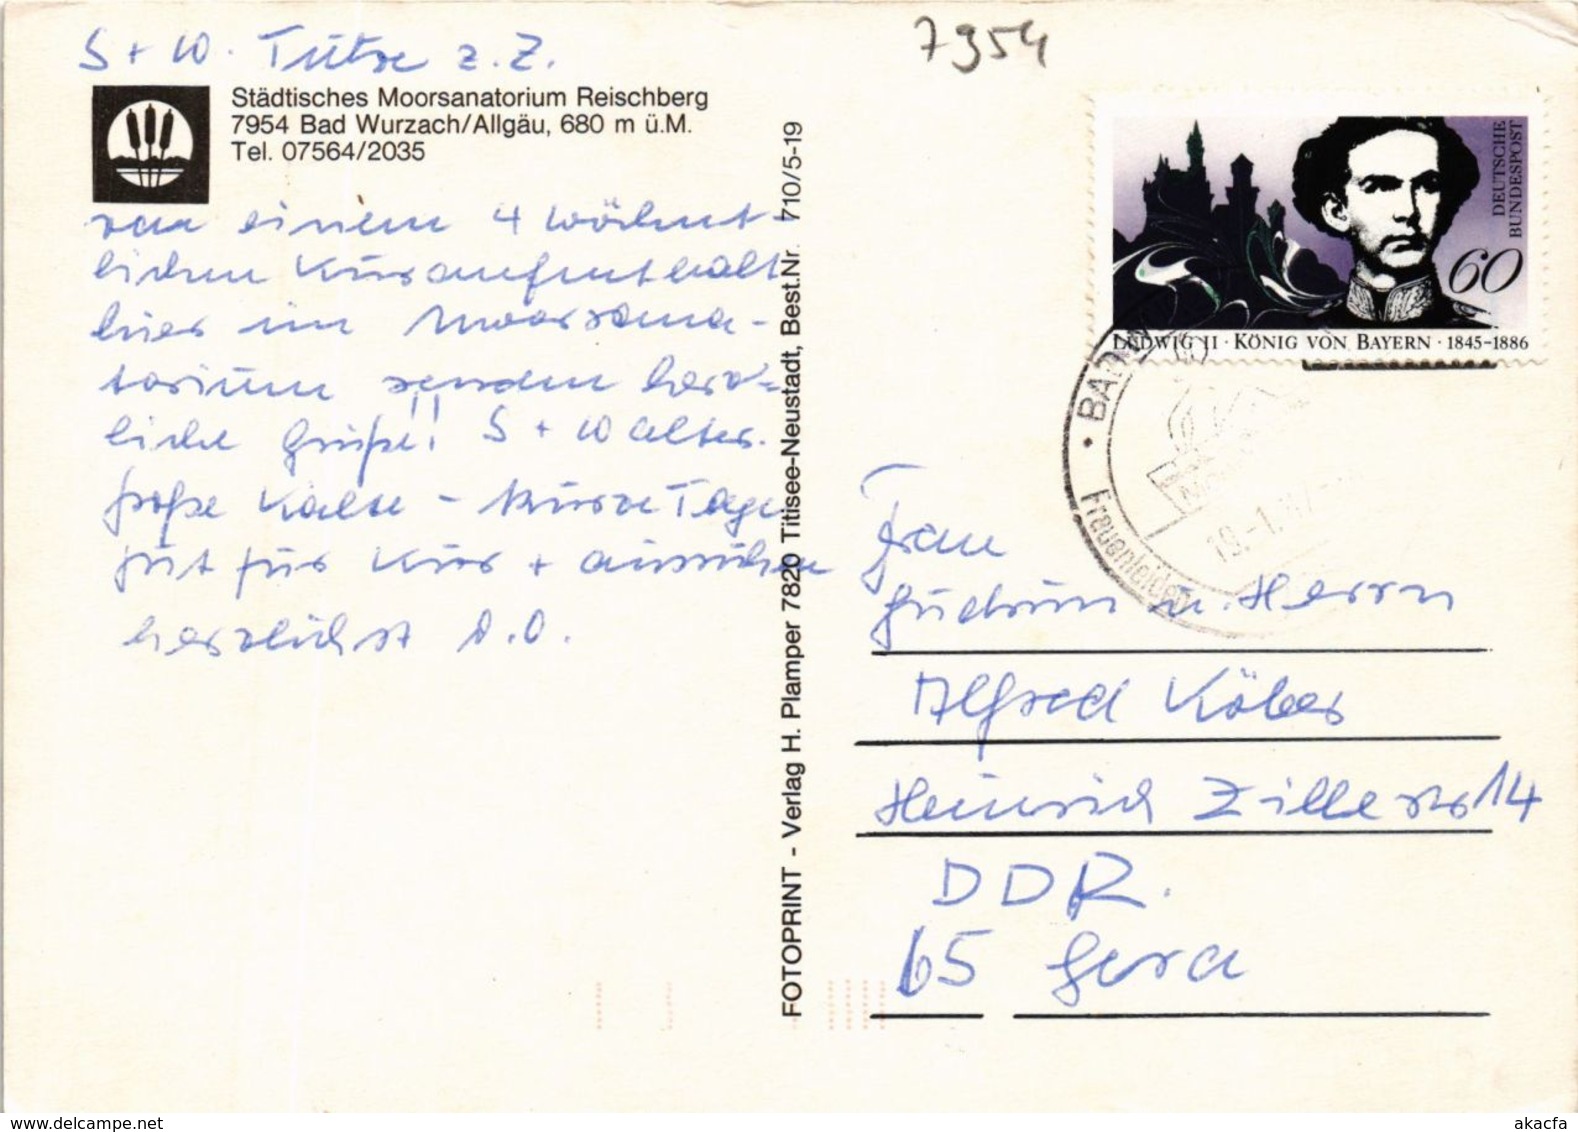 S + W. Tietze z. Z.
Städtisches Moorsanatorium Reischberg
7954 Bad Wurzach/Allgäu, 680 m ü.M.
Tel. 07564/2035
von einem 4 wöchent-
lichen Kuraufenthalt
hier im Moorsana-
torium senden herz-
liche Grüße!! S + Walter.
große Kälte - kurze Tage
gut für Kur + ausruhen
herzlichst D. O.
FOTOPRINT - Verlag H. Plamper 7820 Titisee-Neustadt, Best.Nr. 710/5-19
7954
DEUTSCHE
BUNDESPOST
60
LUDWIG II · KÖNIG VON BAYERN · 1845-1886
Frauenleiden
Frau
Gudrun u. Herrn
Alfred Köber
Heinrich Zillestr 14
DDR.
65 Gera
akacfa